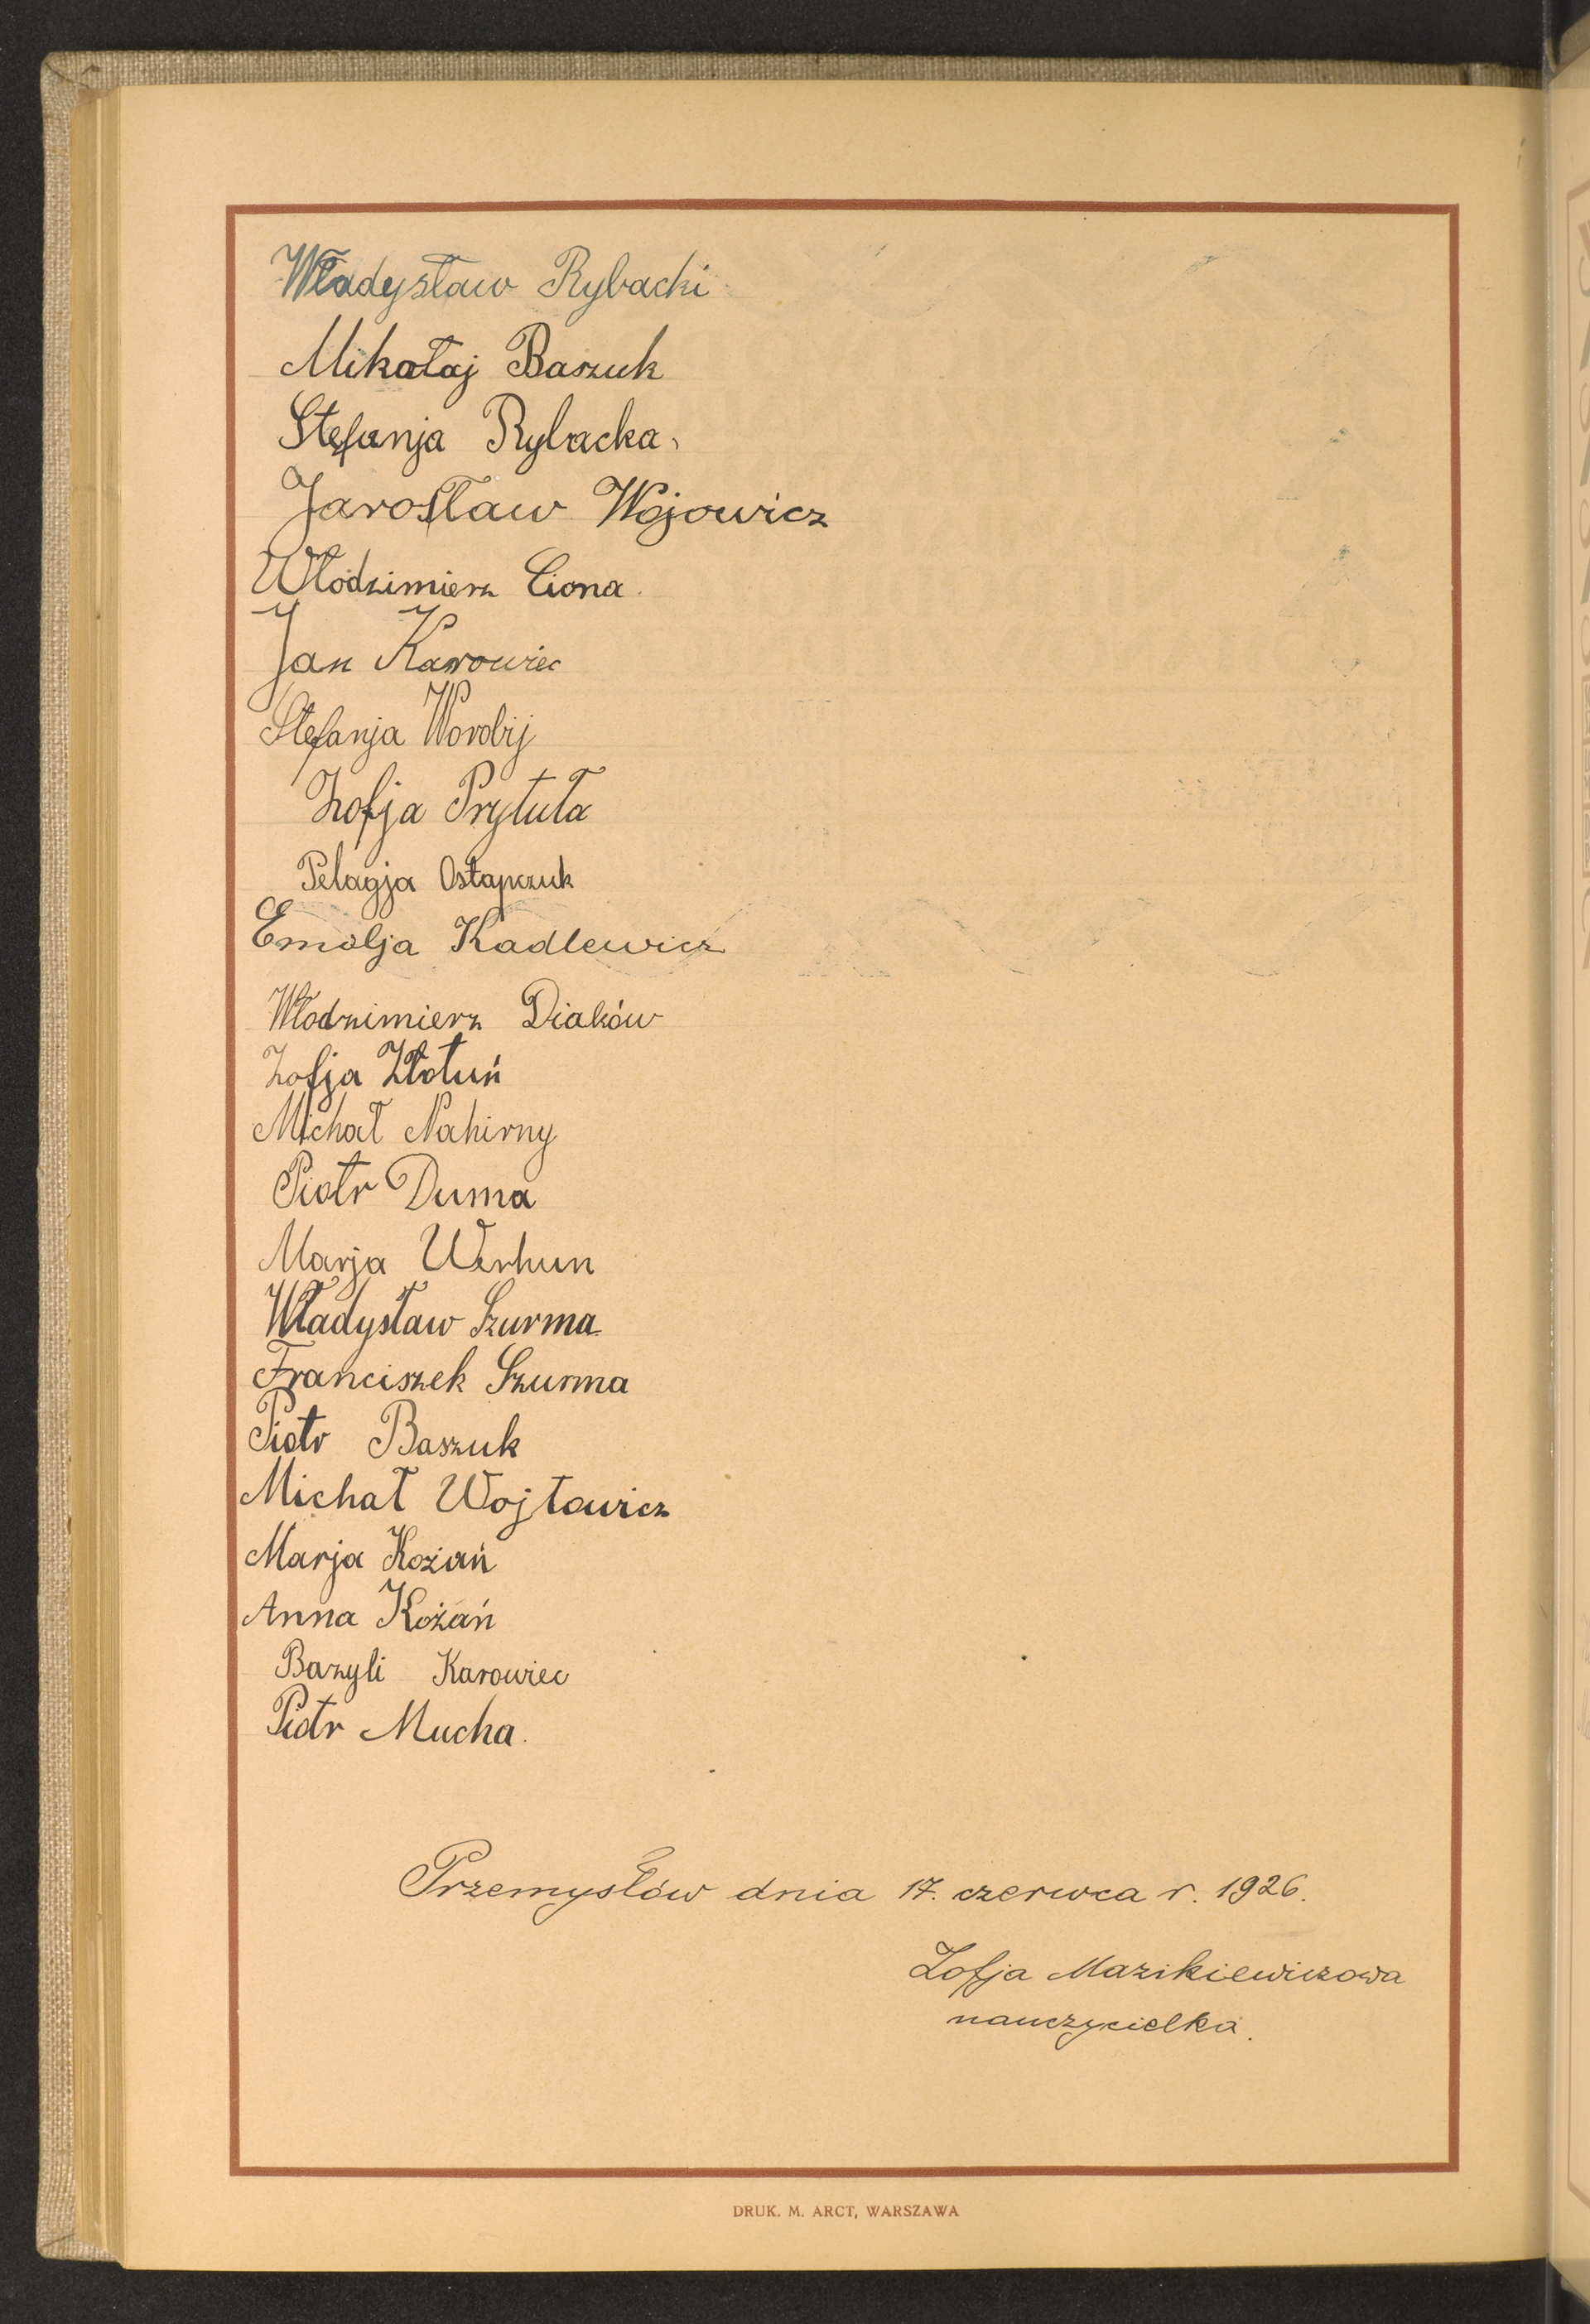 Władysław Rybacki
Mikołaj Baszuk
Stefanja Rybacka
Jarosław Wojowicz
Włodzimierz Ciona
Jan Karowiec
Stefanja Worobij
Zofja Prytuła
Pelagja Ostapczuk
Emolja Kadlewicz
Włodzimierz Diaków
Zofja Złotuń
Michał Nahirny
Piotr Duma
Marja Werhun
Władysław Szurma
Franciszek Szurma
Piotr Baszuk
Michał Wojtowicz
Marja Kożań
Anna Kożań
Bazyli Karowiec
Piotr Mucha.
Przemysłów dnia 17. czerwca r. 1926.
Zofja Mazikiewiczowa
nauczycielka.
DRUK. M. ARCT, WARSZAWA